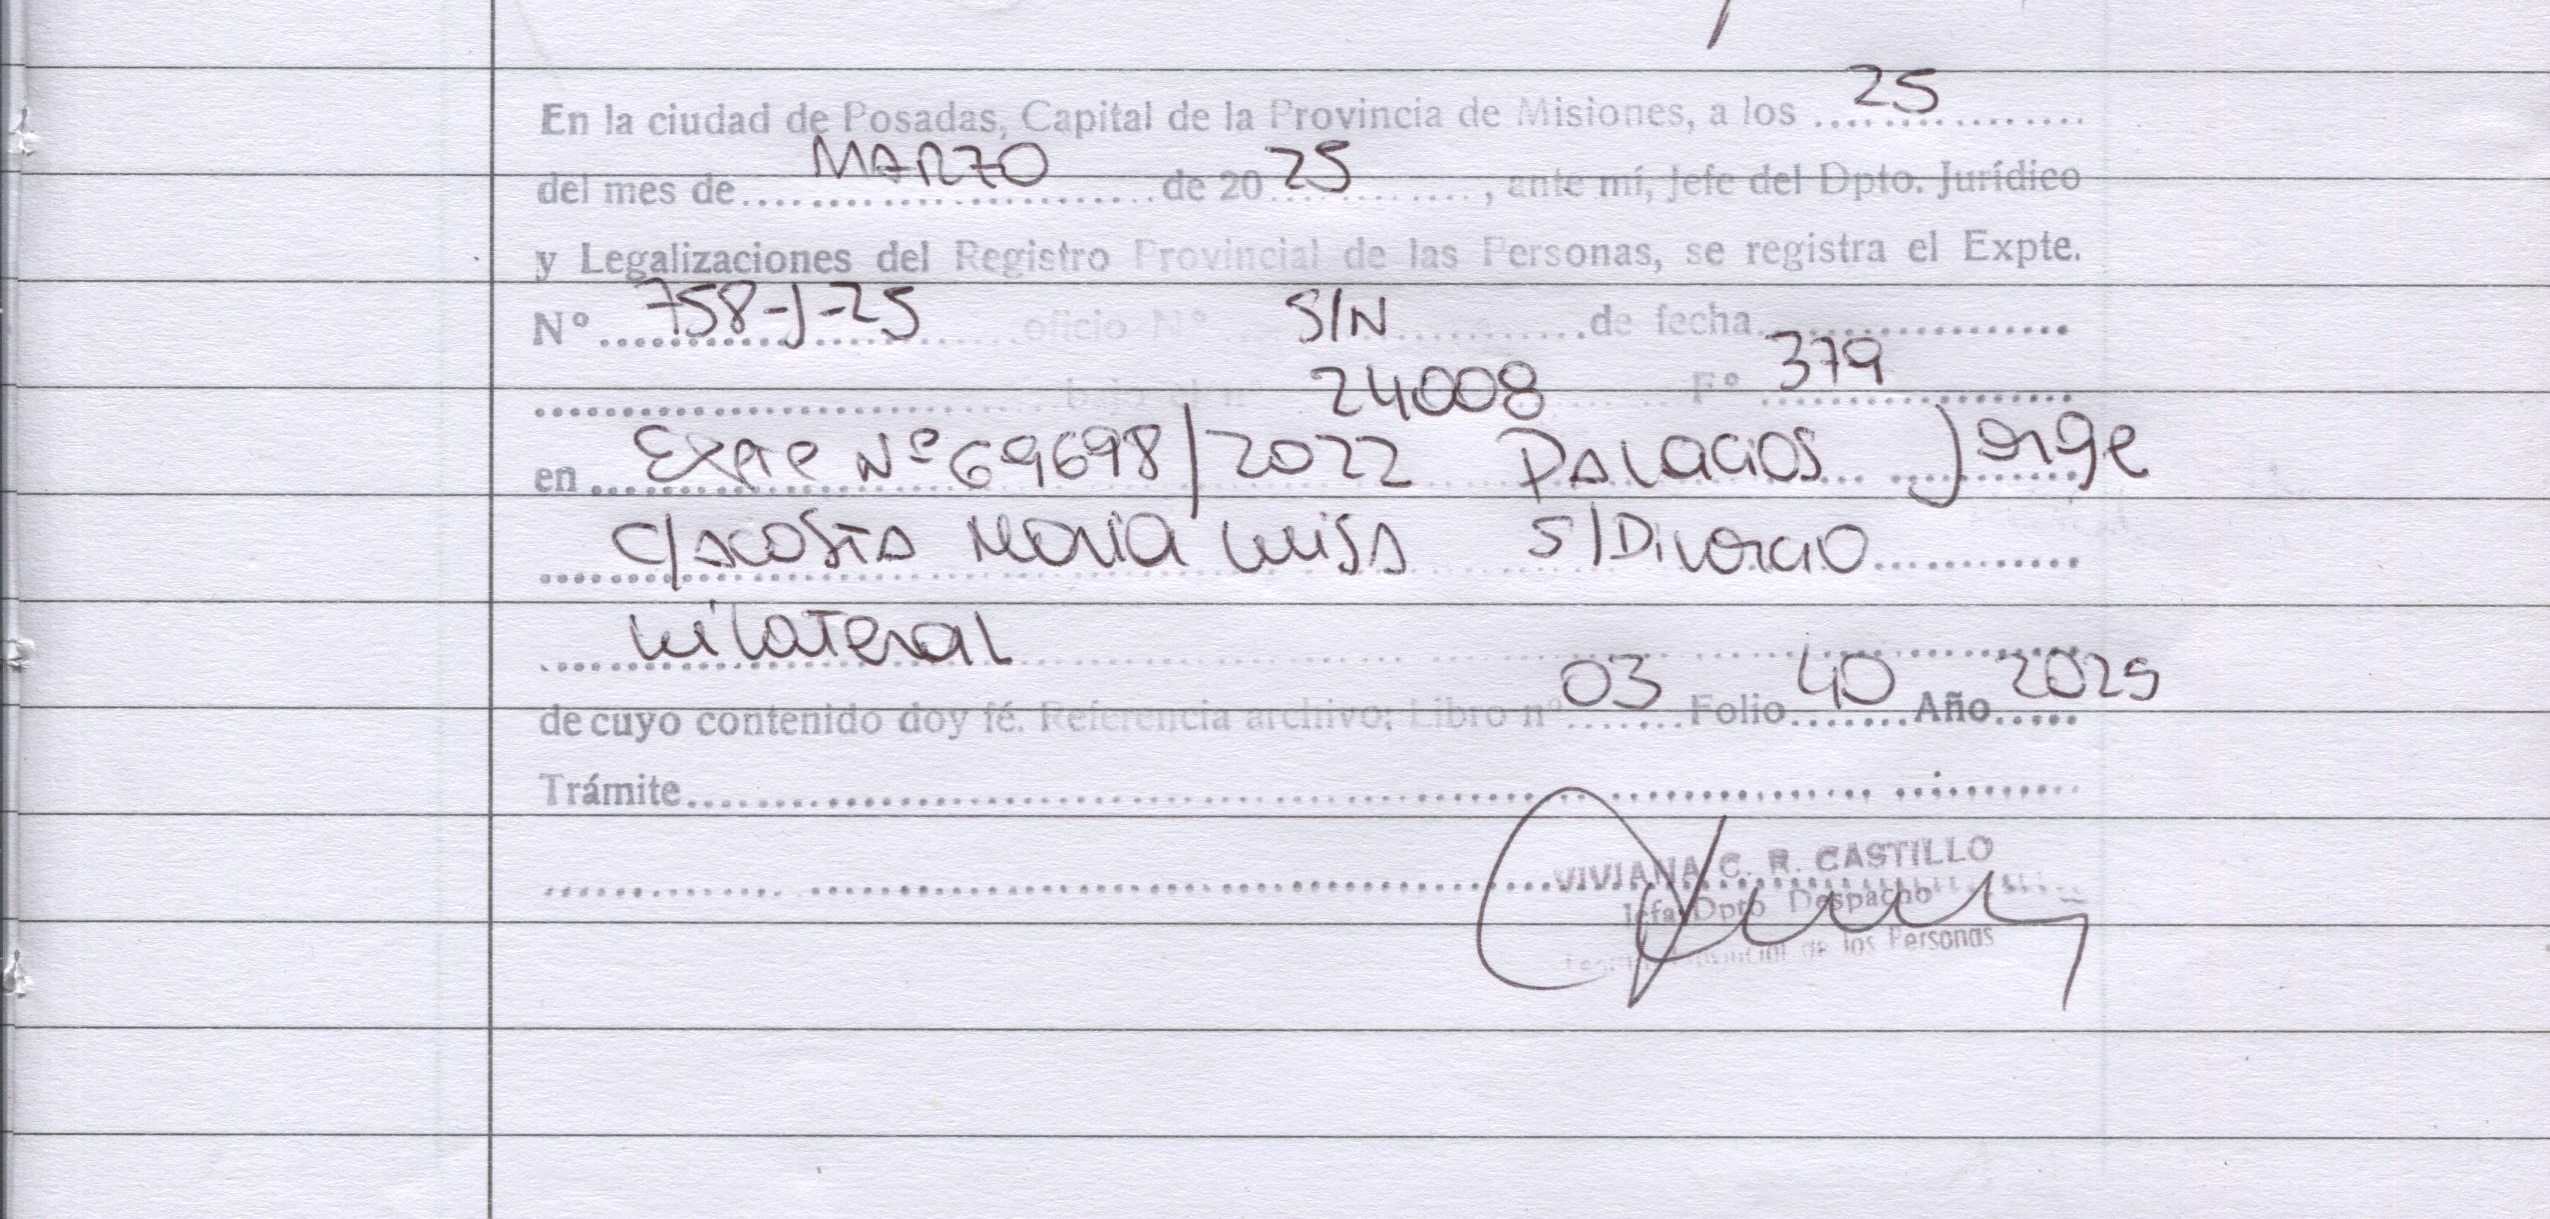 En la ciudad de Posadas, Capital de la Provincia de Misiones, a los 25
del mes de MARZO de 20 25, ante mí, Jefe del Dpto. Jurídico
y Legalizaciones del Registro Provincial de las Personas, se registra el Expte.
Nº 758-J-25 oficio Nº S/N de fecha
bajo el nº 24008 Fº 379
en Expte Nº 69698/2022 Palacios Jorge
c/Acosta Maria Luisa S/Divorcio
unilateral
de cuyo contenido doy fé. Referencia archivo: Libro nº 03 Folio 40 Año 2025
Trámite
VIVIANA C. R. CASTILLO
Jefa Dpto Despacho
Provincial de las Personas